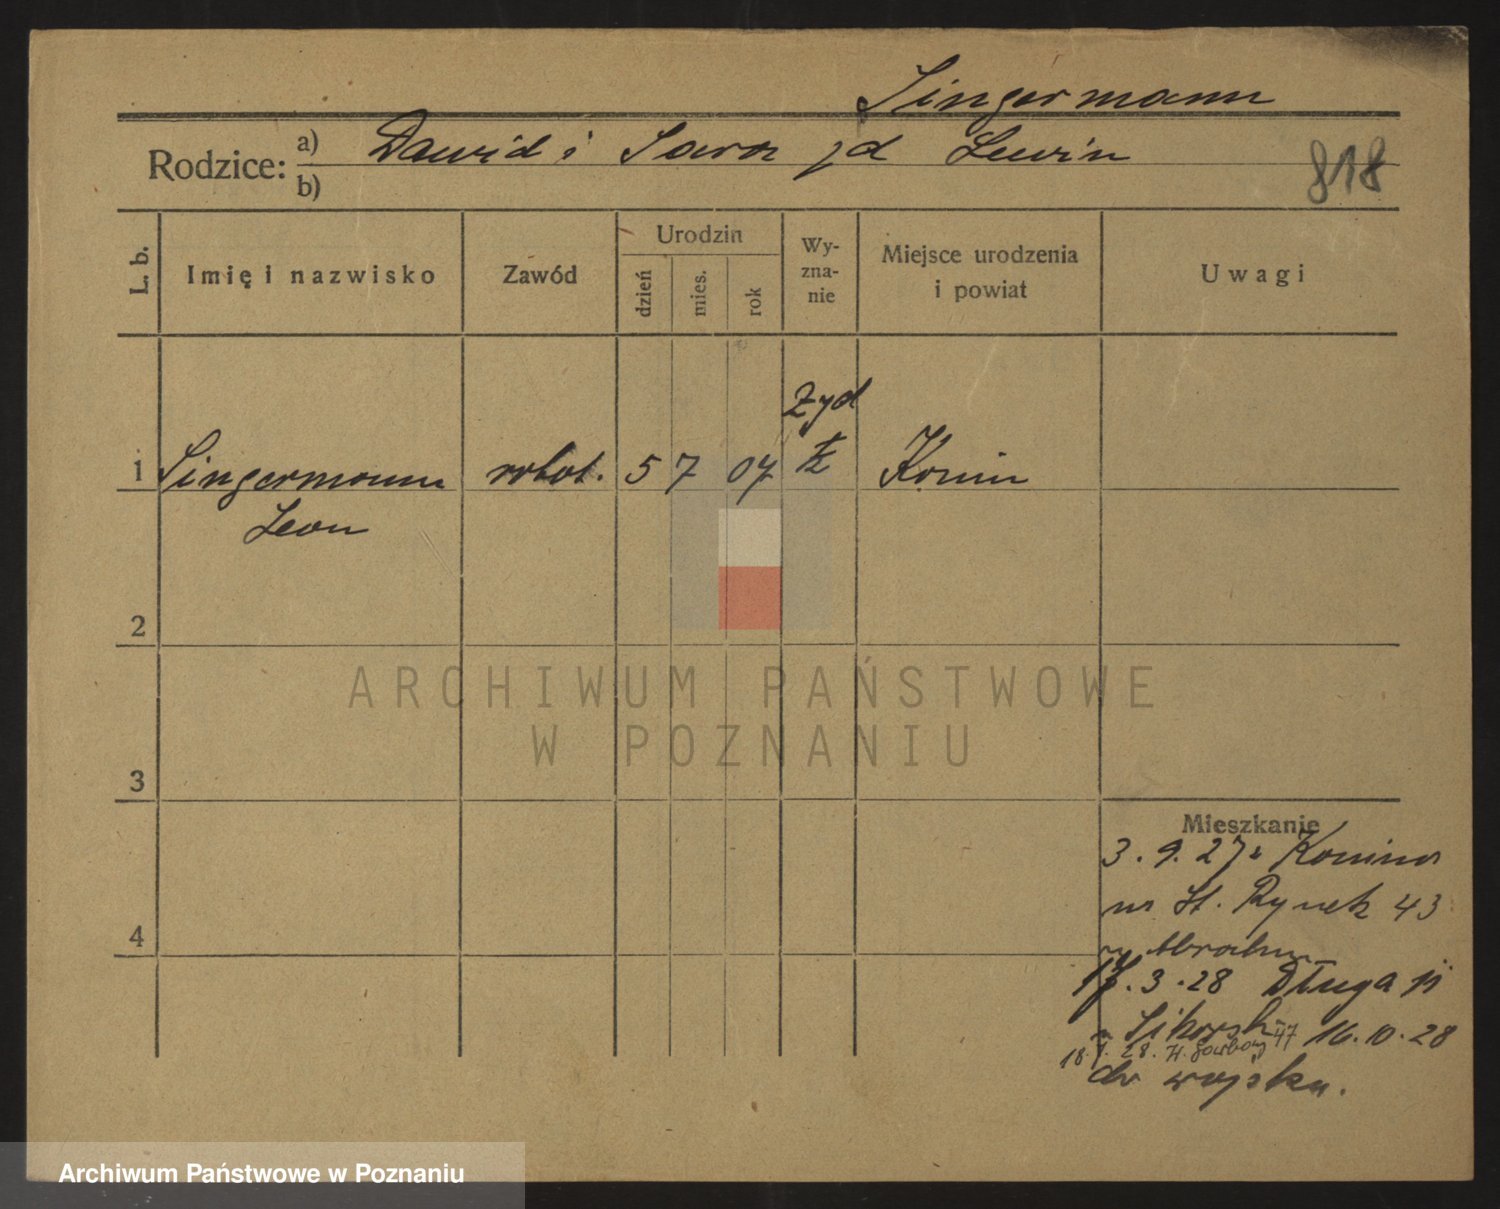 Singermann
Rodzice: a) Dawid i Sara zd Lewin
b)
818
L. b.
Imię i nazwisko
Zawód
Urodzin
dzień
mies.
rok
Wy-
zna-
nie
Miejsce urodzenia
i powiat
Uwagi
Żyd
1 Singermann robot. 5 7 07 Konin
Leon
2
ARCHIWUM PAŃSTWOWE
W POZNANIU
3
Mieszkanie
3.9.27 z Konina
na St. Rynek 43
4
17.3.28 Długa 11
Sikorsk 16.10.28
18. 28. 47
do wojska.
Archiwum Państwowe w Poznaniu